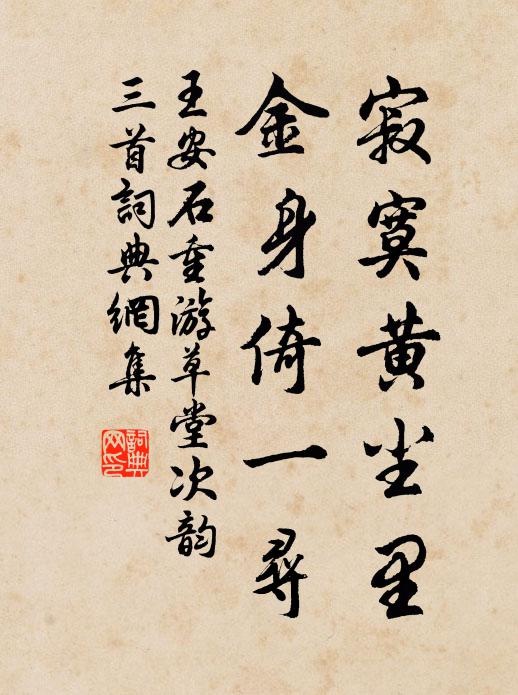 寂寞黄尘里
金身倚一尋
王安石重游草堂次韵
三首詞典網集
詞典网印